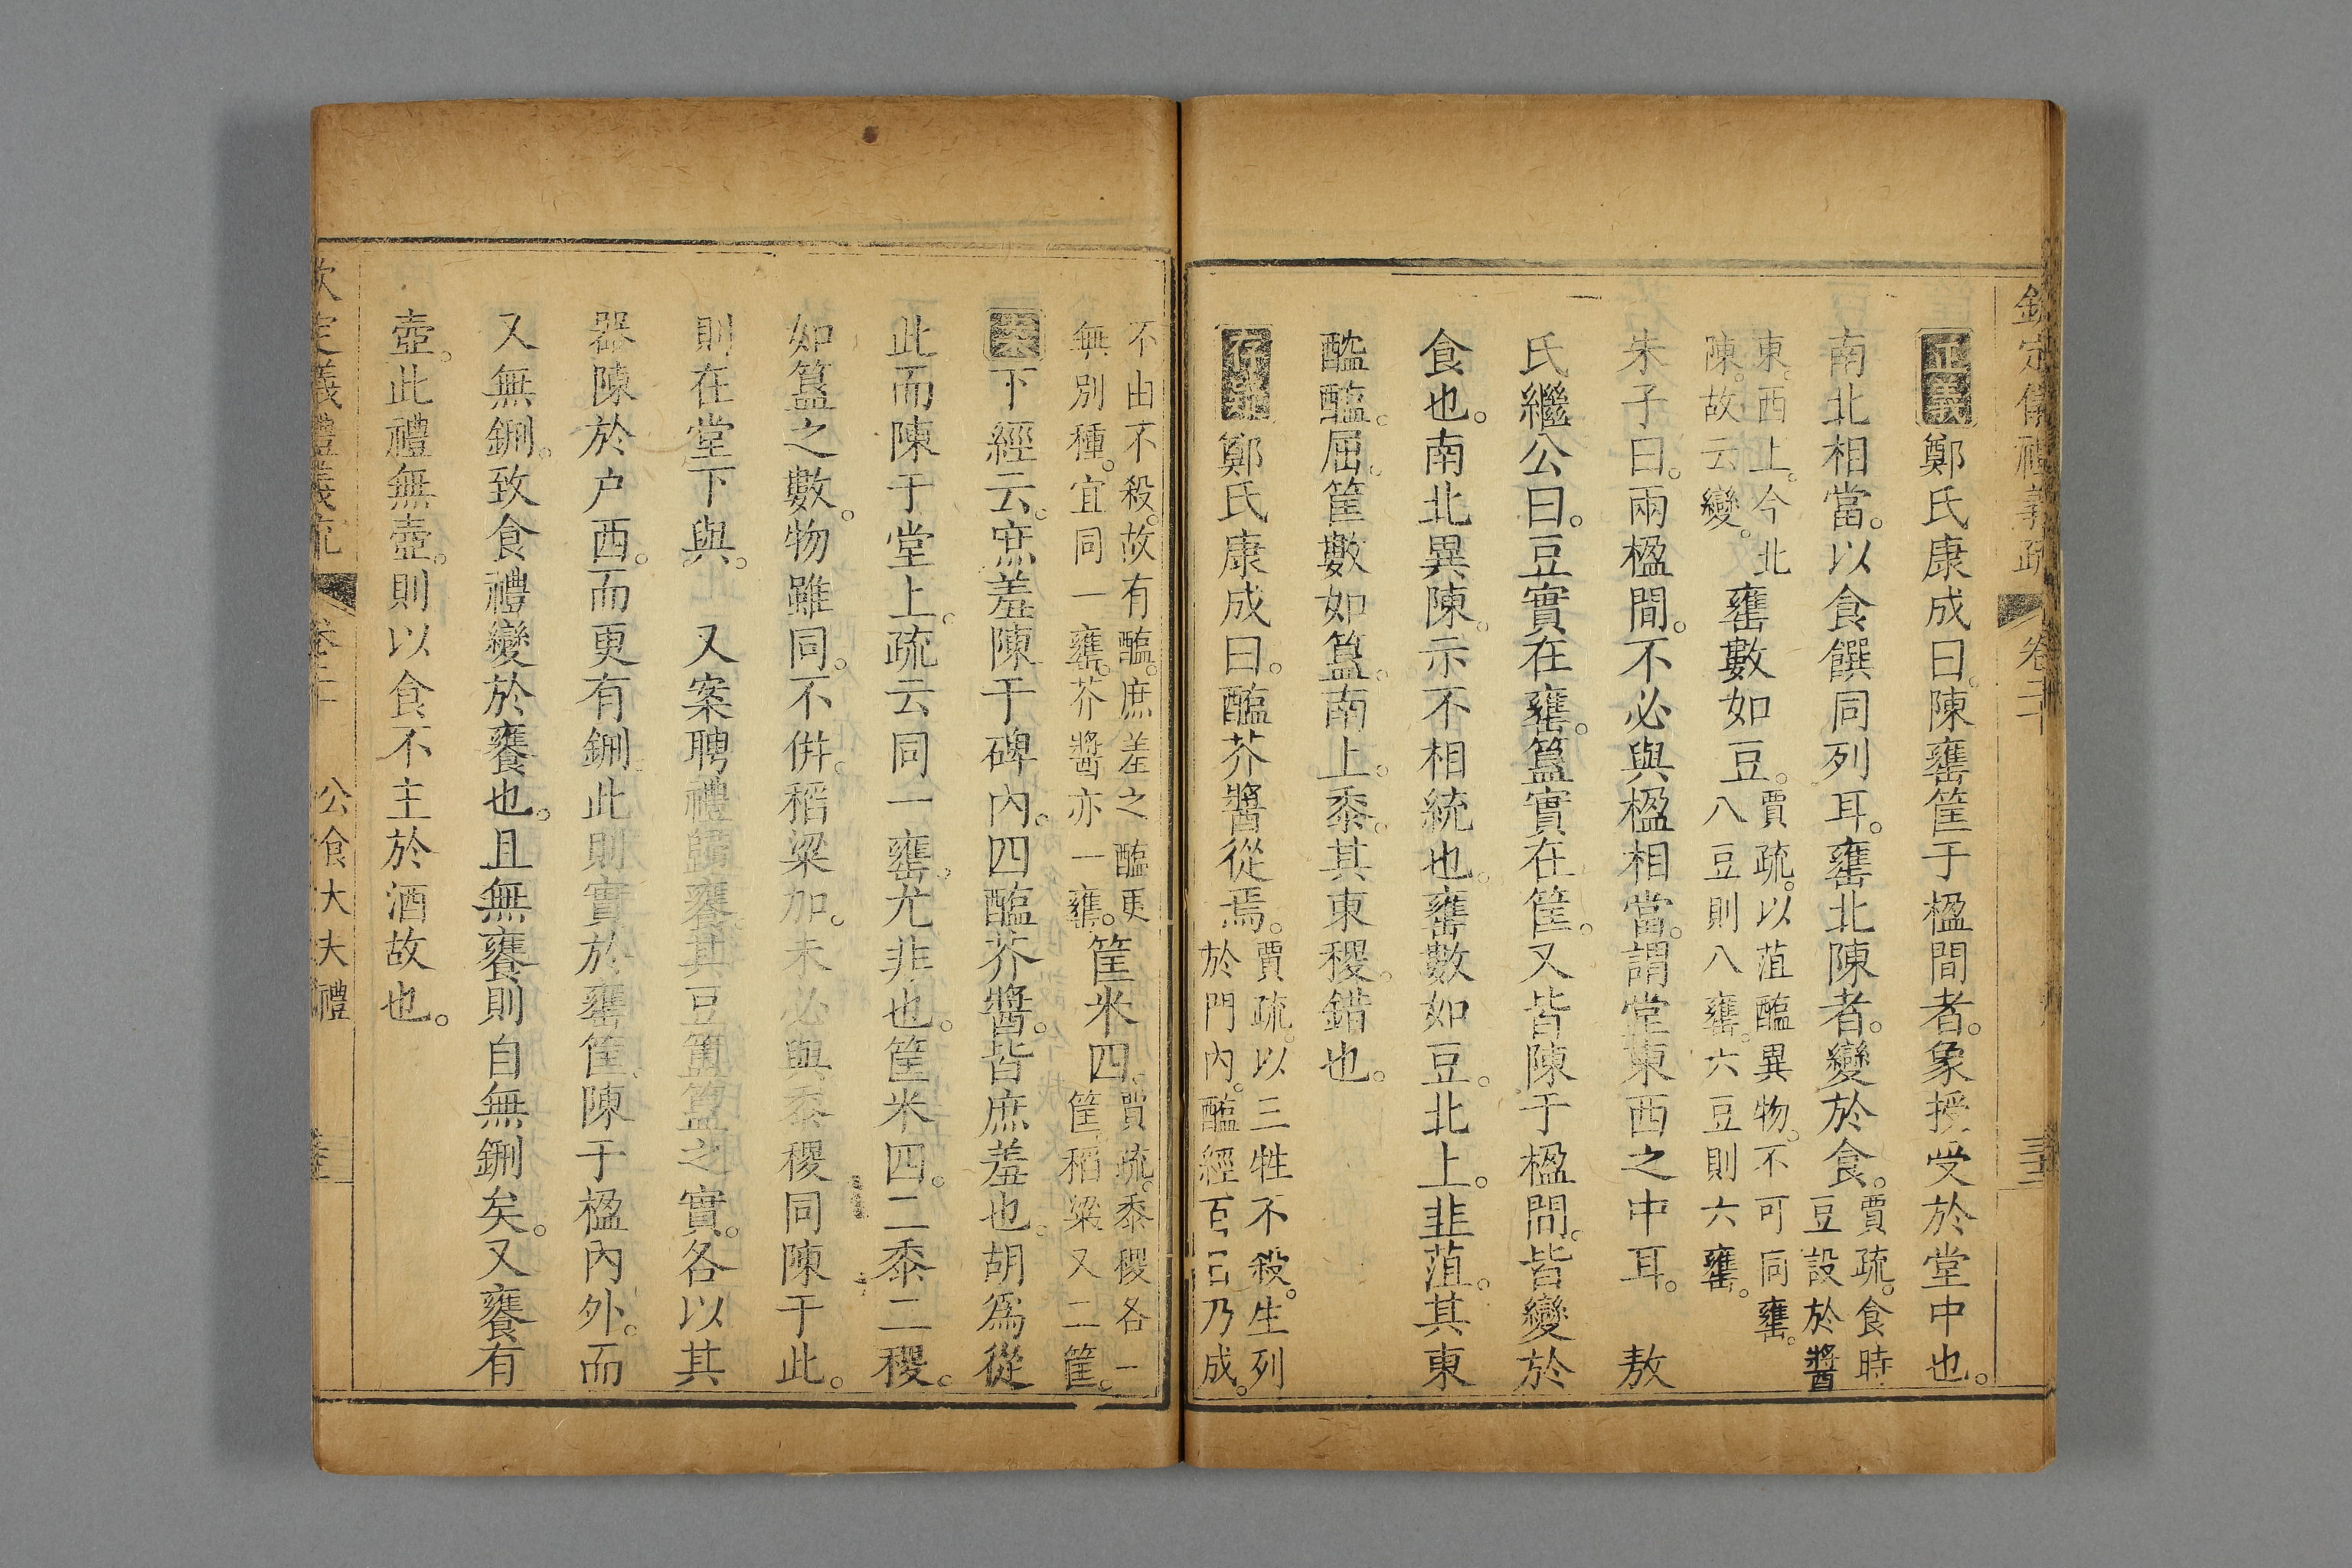 欽定儀禮義疏 卷二十
正義鄭氏康成曰。陳甕筐于楹間者。象授受於堂中也。
南北相當。以食饌同列耳。甕北陳者。變於食。賈疏。食時豆設於醬
東。西上。今北陳。故云變。甕數如豆。賈疏。以菹醢異物。不可同甕。八豆則八甕。六豆則六甕。
朱子曰。兩楹間。不必與楹相當。謂堂東西之中耳。 敖
氏繼公曰。豆實在甕。簋實在筐。又皆陳于楹間。皆變於
食也。南北異陳。示不相統也。甕數如豆。北上。韭菹。其東
醓醢。屈。筐數如簋。南上。黍。其東稷。錯也。
存疑鄭氏康成曰。醢芥醬從焉。賈疏。以三牲不殺。生列於門內。醢經百日乃成。
不由不殺。故有醢。庶羞之醢更無別種。宜同一甕。芥醬亦一甕。筐米四。賈疏。黍稷各一筐。稻粱又二筐。
案下經云。庶羞陳于碑內。四醢芥醬。皆庶羞也。胡爲從
此而陳于堂上。疏云同一甕。尤非也。筐米四。二黍二稷。
如簋之數。物雖同。不併。稻粱加。未必與黍稷同陳于此。
則在堂下與。 又案聘禮歸饔。其豆簠簋之實。各以其
器陳於户西。而更有鉶。此則實於甕筐。陳于楹內外。而
又無鉶。致食禮變於饔也。且無饔則自無鉶矣。又饔有
壺。此禮無壺。則以食不主於酒故也。
欽定義禮義疏 卷二十 公食大夫禮